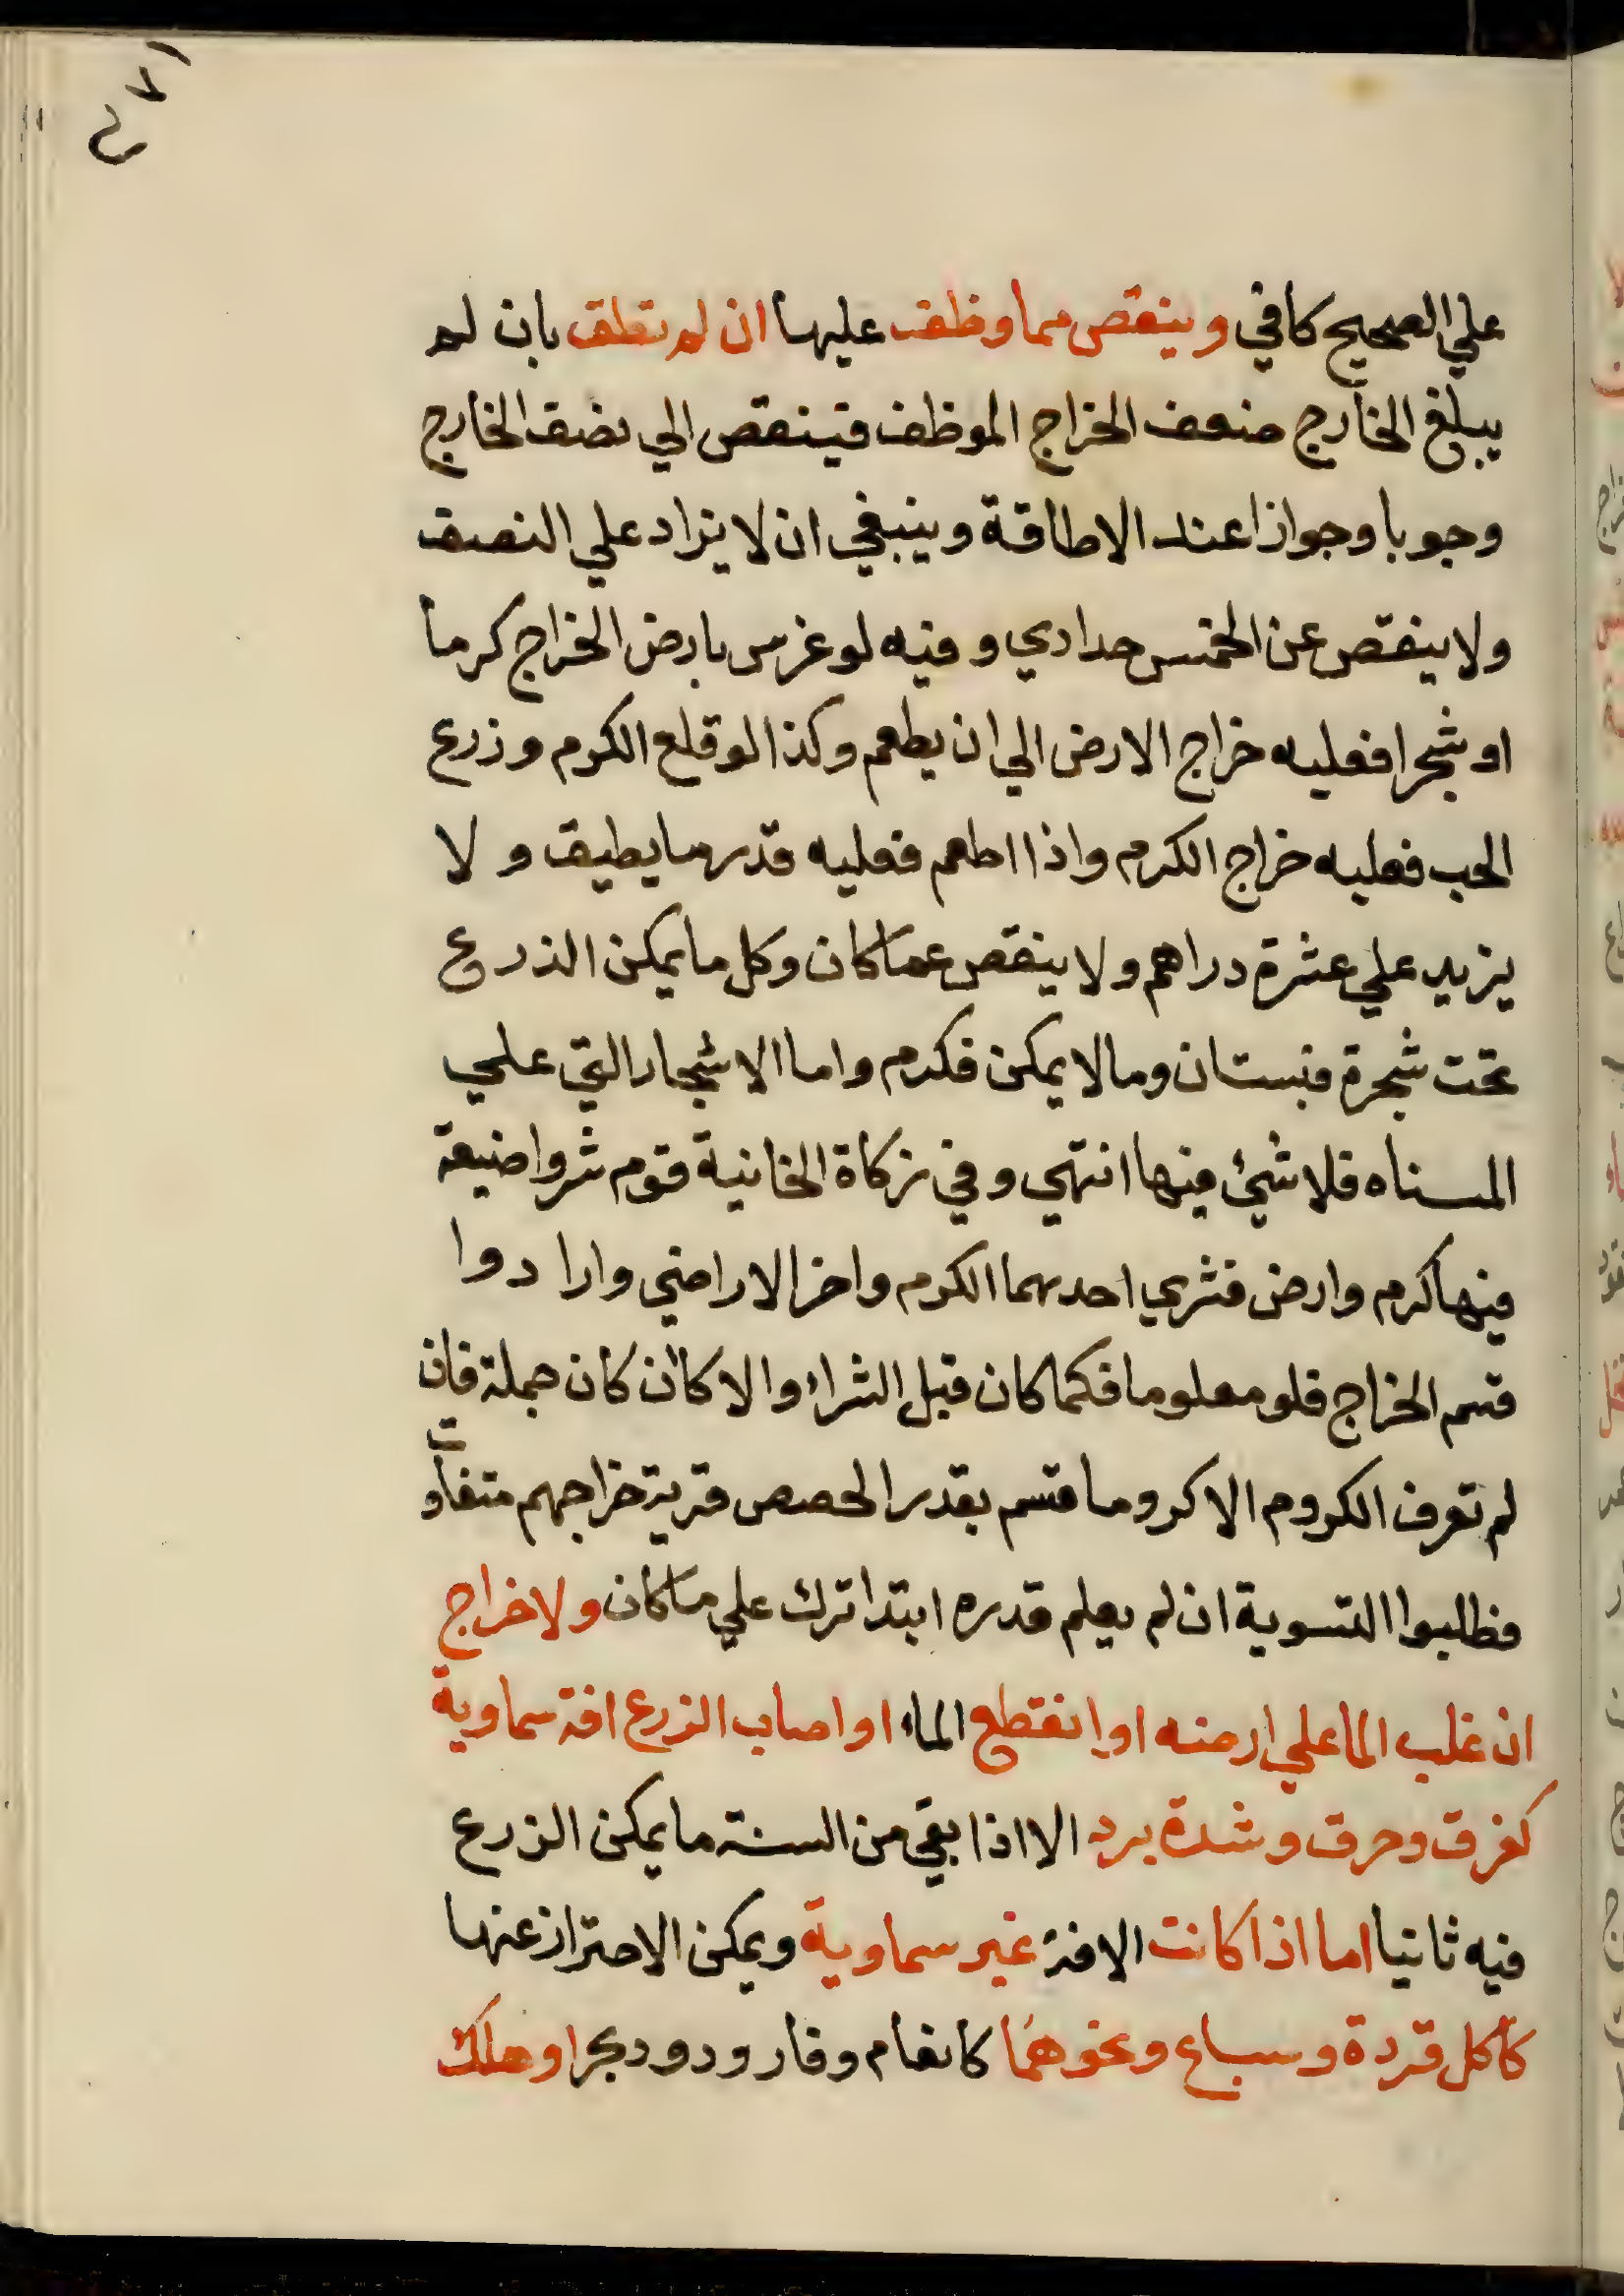 علي الصحيح كافي وينقص مما وظف عليها ان لم تطق بان لم
يبلغ الخارج ضعف الخراج الموظف فينقص الي نصف الخارج
وجوبا وجوازا عند الاطاقة وينبغي ان لا يزاد علي النصف
ولا ينقص عن الخمس حدادي وفيه لو غرس بارض الخراج كرما
او شجرا فعليه خراج الارض الي ان يطعم وكذا لو قلع الكرم وزرع
الحب فعليه خراج الكرم واذا اطعم فعليه قدر ما يطيق ولا
يزيد علي عشرة دراهم ولا ينقص عما كان وكل ما يمكن الذرع
تحت شجرة فبستان وما لا يمكن فكرم واما الاشجار التي علي
المسناه فلا شئ فيها انتهي وفي زكاة الخانية قوم شروا ضيعة
فيها كرم وارض فشري احدهما الكرم واخر الاراضي وارادوا
قسم الخراج فلو معلوما فكما كان قبل الشراء والا كان كان جملة فان
لم تعرف الكروم الا كروما قسم بقدر الحصص قرية خراجهم متفاوت
فطلبوا التسوية ان لم يعلم قدره ابتدا ترك علي ما كان ولا خراج
ان غلب الما علي ارضه او انقطع الماء او اصاب الزرع افة سماوية
كغرق وحرق وشدة برد الا اذا بقي من السنة ما يمكن الزرع
فيه ثانيا اما اذا كانت الافة غير سماوية ويمكن الاحتراز عنها
كاكل قردة وسباع ونحوهما كانعام وفار ودودة بحر او هلك